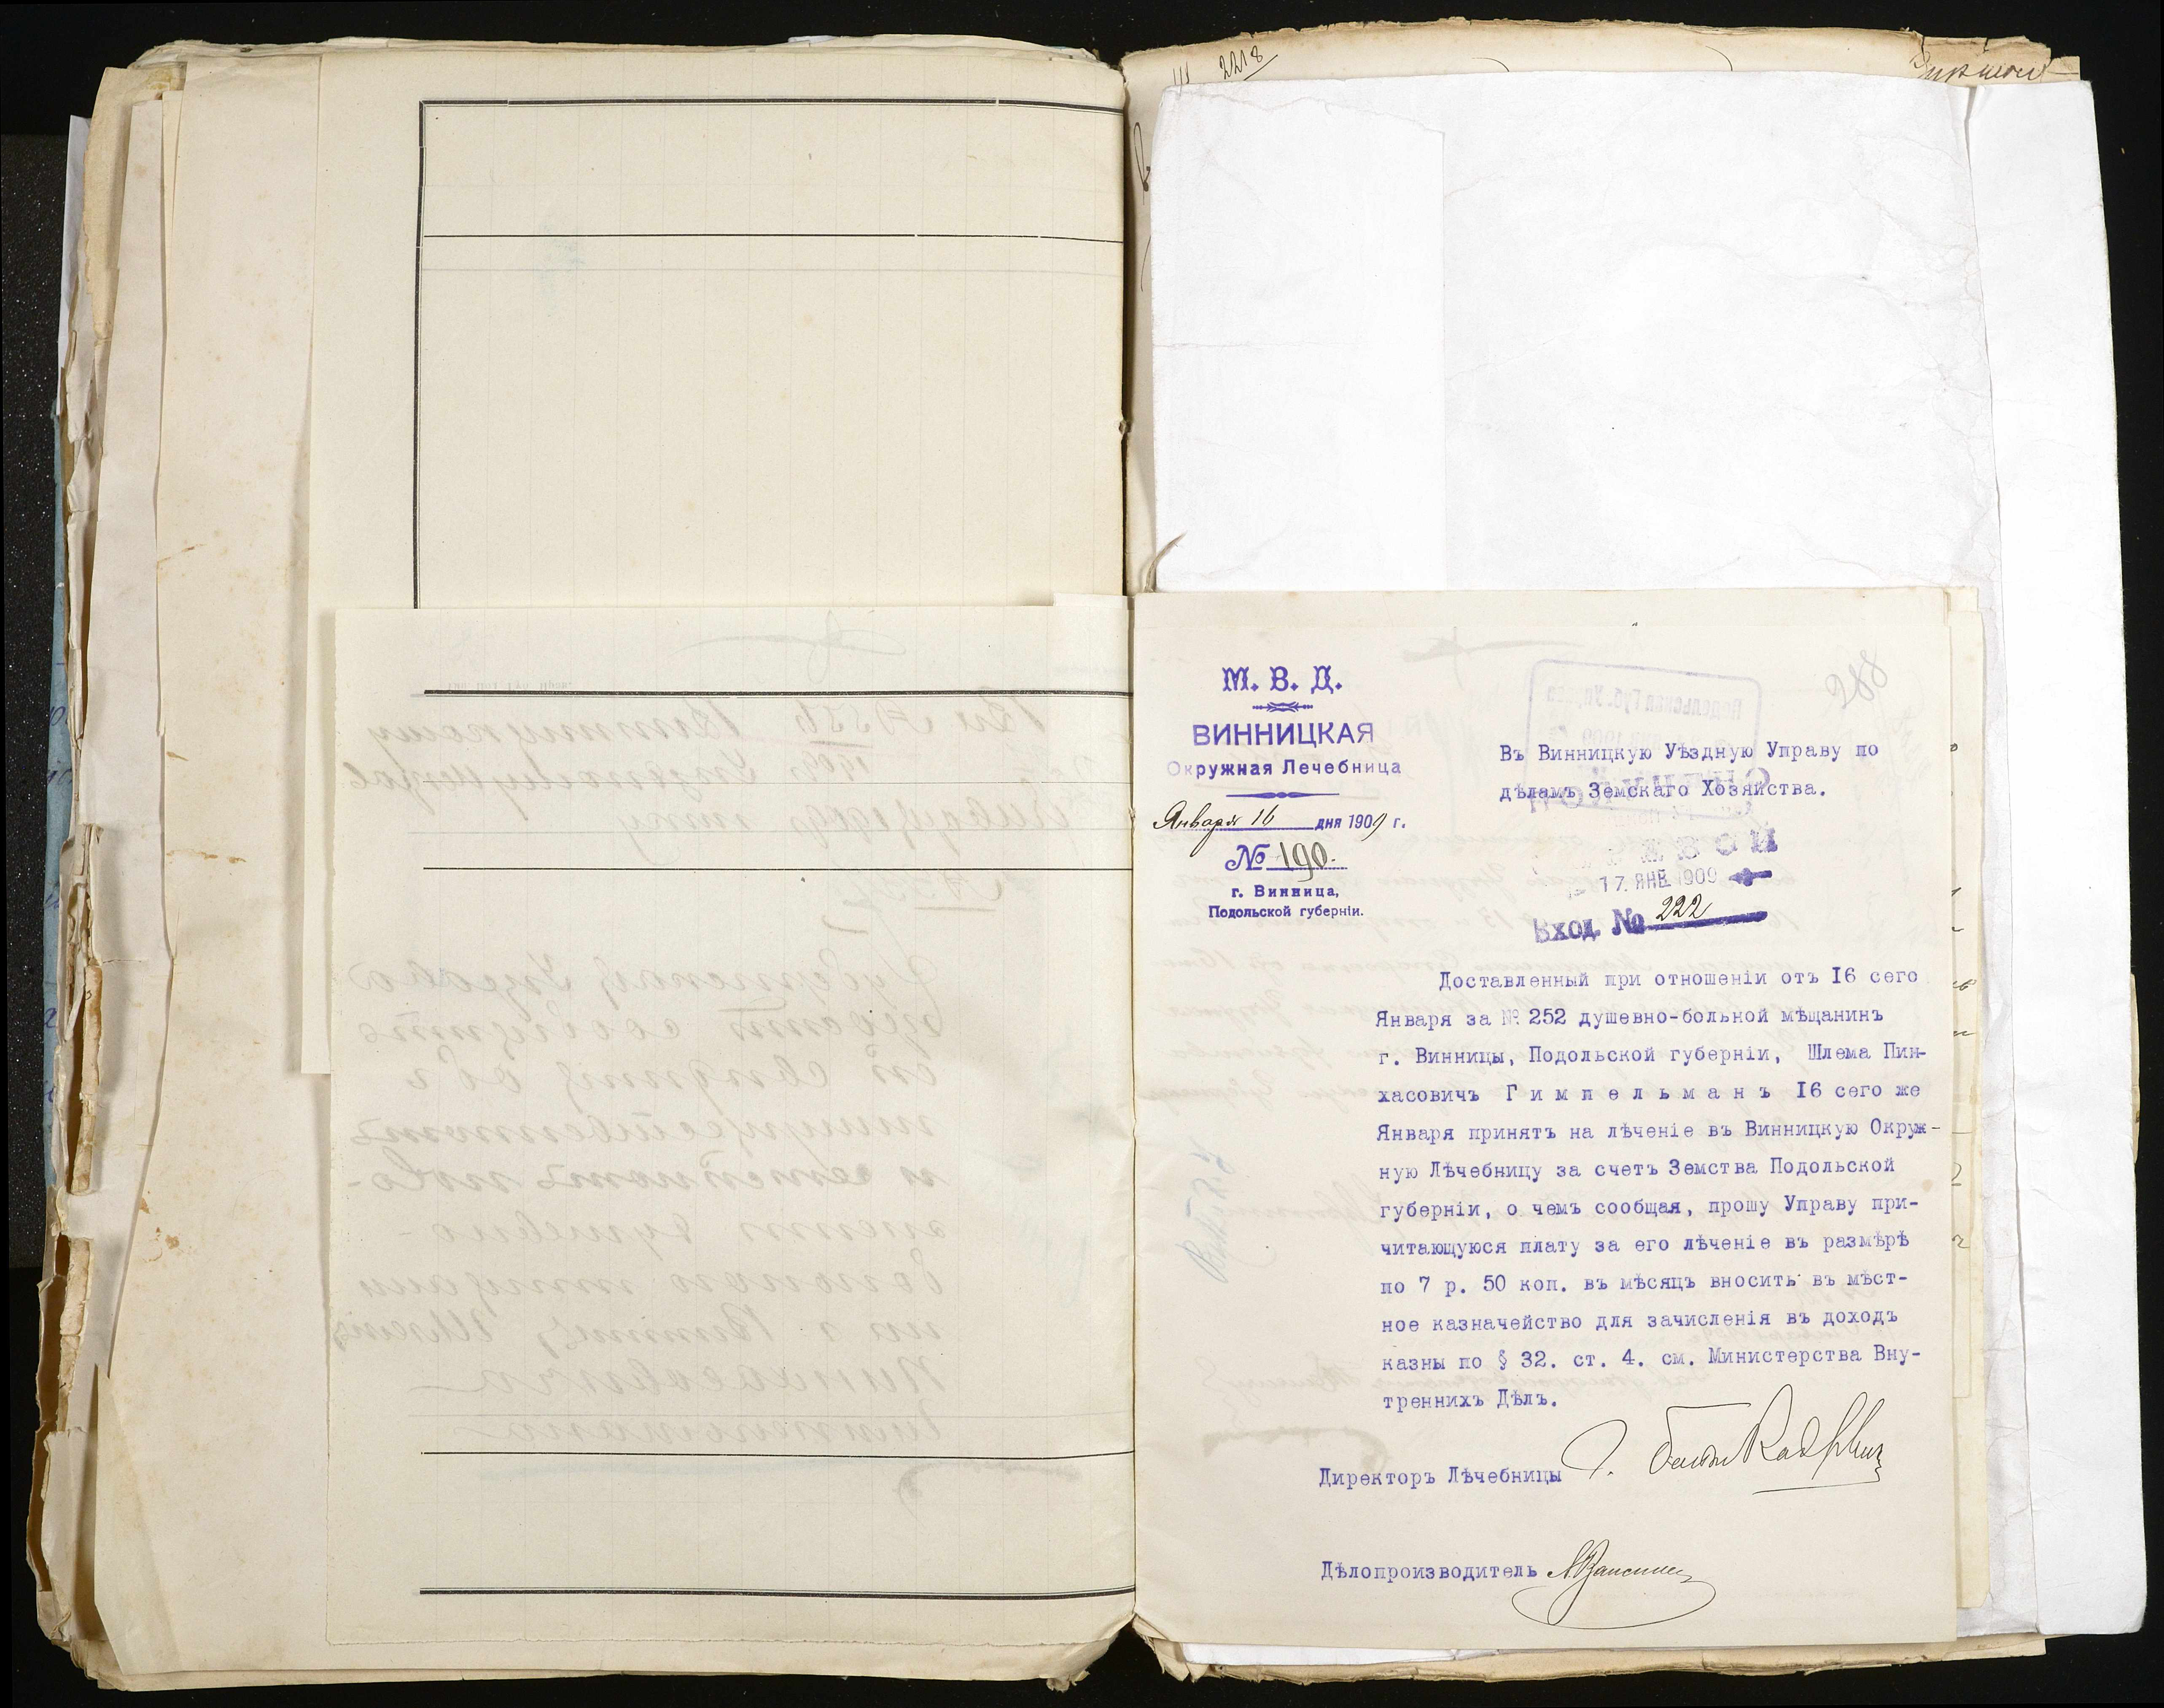 2218
М. В. Д.
ВИННИЦКАЯ
Окружная Лечебница
Января 16 дня 1909 г.
№ 190.
г. Винница,
Подольской губерніи.
288
Въ Винницкую Уѣздную Управу по
дѣламъ Земскаго Хозяйства.
17. ЯНВ. 1909
Вход. № 222
Доставленный при отношеніи отъ 16 сего
Января за № 252 душевно-больной мѣщанинъ
г. Винницы, Подольской губерніи, Шлема Пин-
хасовичъ Г и м п е л ь м а н ъ 16 сего же
Января принятъ на лѣченіе въ Винницкую Окруж-
ную Лѣчебницу за счетъ Земства Подольской
губерніи, о чемъ сообщая, прошу Управу при-
читающуюся плату за его лѣченіе въ размѣрѣ
по 7 р. 50 коп. въ мѣсяцъ вносить въ мѣст-
ное казначейство для зачисленія въ доходъ
казны по § 32. ст. 4. см. Министерства Вну-
треннихъ Дѣлъ.
Директоръ Лѣчебницы
Дѣлопроизводитель